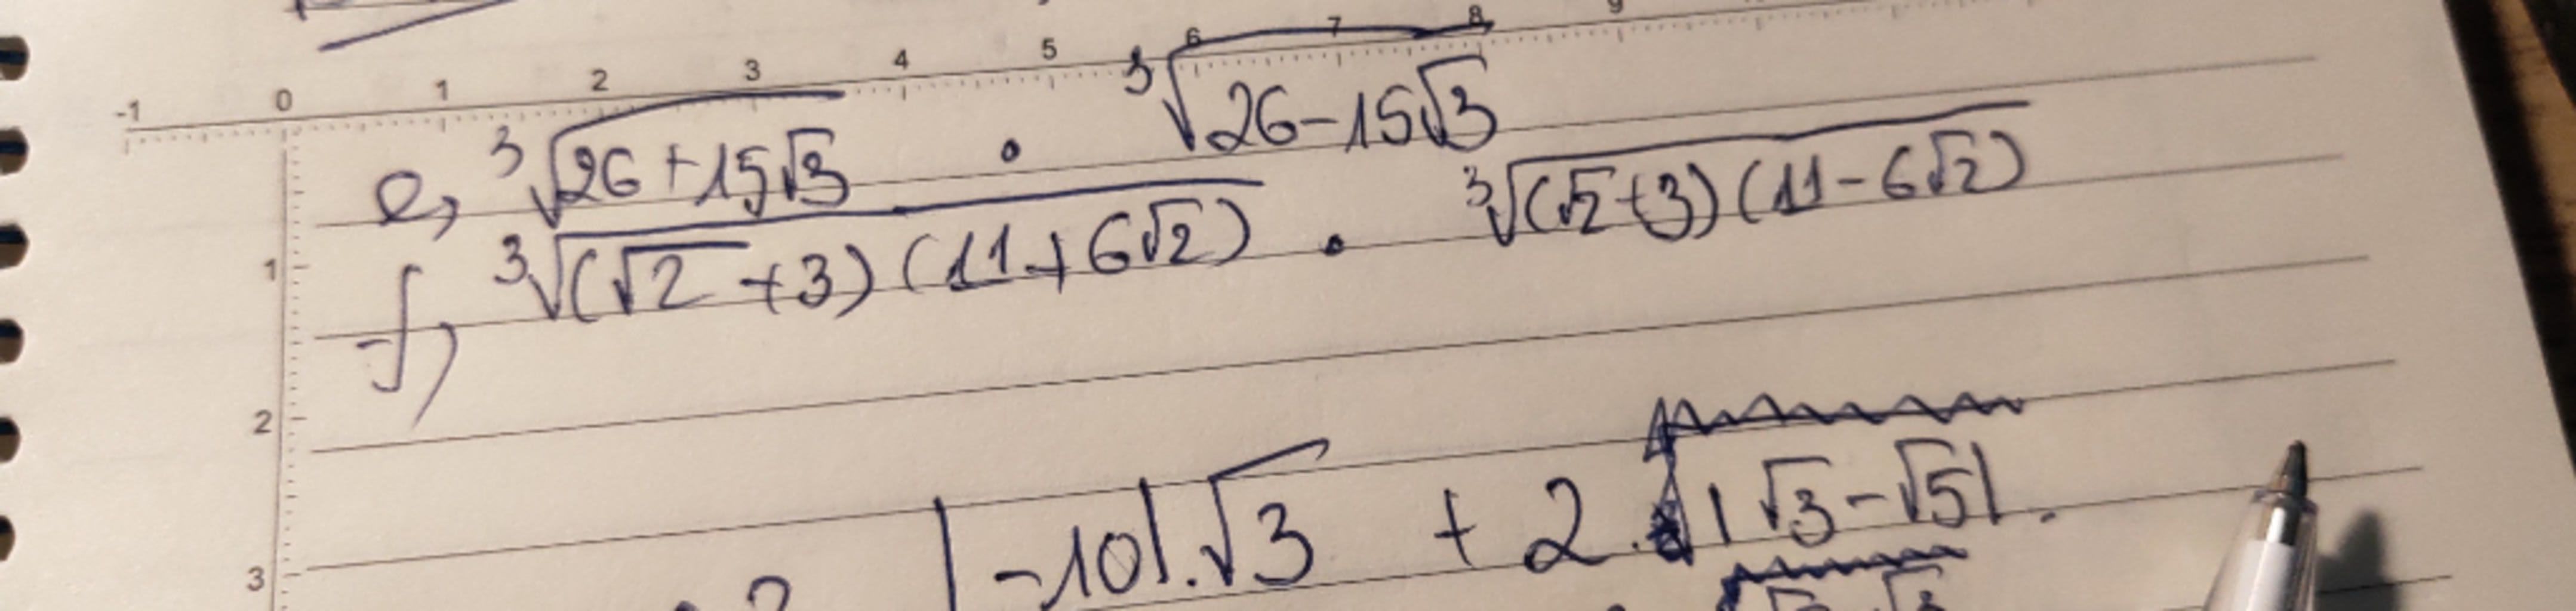 -1 0 1 2 3 4 5 6 7 8 9
e, ³√(26+15√3) · ³√(26-15√3)
f, ³√((√2+3)(11+6√2)) · ³√((√2+3)(11-6√2))
1
2
|-10|.√3 + 2.|√3-√5|.
3